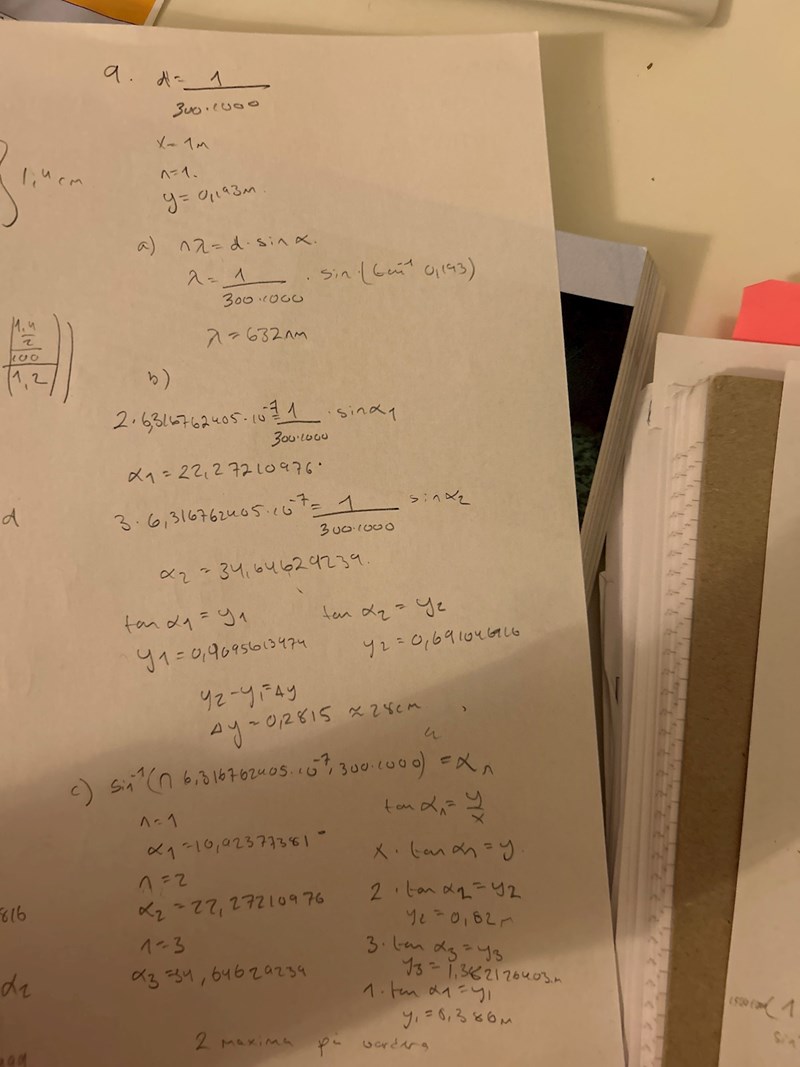 9. d = 1
300·1000
x = 1m
n=1.
y = 0,193m.
1,4 cm
a) nλ = d · sin α.
λ = 1 · sin (tan⁻¹ 0,193)
300·1000
λ = 632nm
1,4
2
100
1,2
b)
2·6,316762405·10⁻⁷ = 1 · sin α1
300·1000
α1 = 22,27210976°
d
3·6,316762405·10⁻⁷ = 1 sin α2
300·1000
α2 = 34,64629239.
tan α1 = y1 tan α2 = y2
y1 = 0,4095613474
y2 = 0,691046
y2 - y1 = Δy
Δy = 0,2815 ≈ 28cm
c) sin⁻¹(n 6,316762405·10⁻⁷·300·1000) = αn
n=1
tan αn = y
x
α1 = 10,92377381°
x · tan αn = y
n=2
α2 = 22,27210976
2 · tan α2 = y2
y2 = 0,82m
816
n=3
3 · tan α3 = y3
α3 = 34,64629239
y3 = 1,382126403m
α2
1 · tan α1 = y1
y1 = 0,386m
2 maxima på vardera
sin